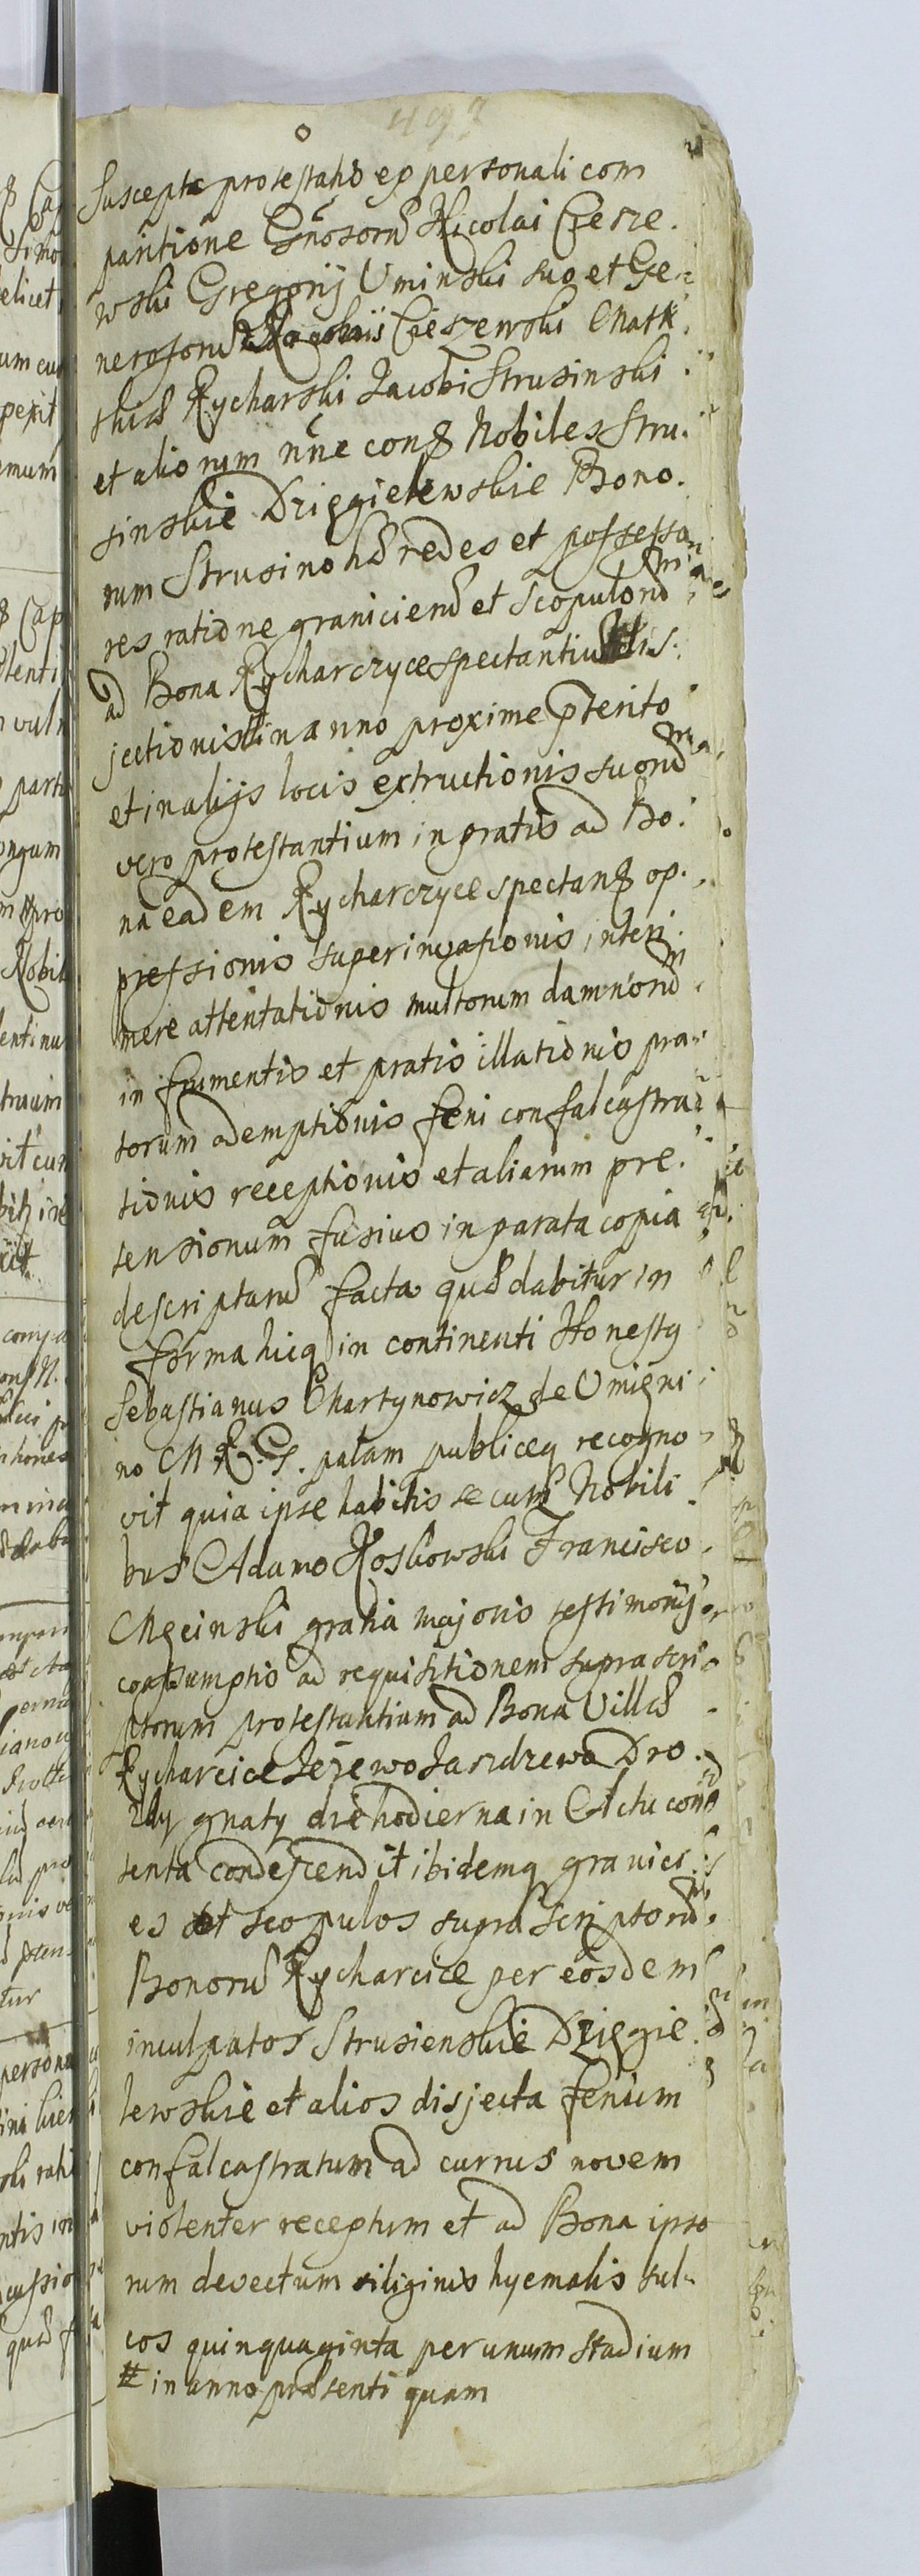 497
Suscepta protestatio ex personali com
paritione Gnosorū Nicolai Ciesze.
wski Gregorij Uminski suo et Ge-
nerosorū Cieszewski Math.
Rycharski Jacobi Strusinski
et aliorum nōne con Nobiles Stru.
sinskie Dzięgielewskie Bono.
rum Strusino hæredes et possesso
res ratione graniciem et Scopulorū
ad Bona Rycharczyce spectantium dis.
jectionis # in anno proxime pterito
et in alijs locis extructionis suorū
vero protestantium in gratis ad Bo.
na eadem Rycharczyce spectan op.
pressionis superinvasionis, interi.
mere attentationis multorum damnorū
in frumentis et pratis illationis pra-
torum ademptionis feni confalcastra
tionis receptionis et aliarum pre.
tensionum fusius in parata copia
descriptarū facta quæ dabitur in
forma hicq in continenti Honesty
Sebastianus Martynowicz de Umieni
no M R. G. palam publiceq recogno
vit quia ipse habitis secum Nobili
bus Adamo Koskowski Francisco
Męcinski gratia majoris testimonij
consumptis ad requisitionem suprascri
ptorum protestantium ad Bona Villæ
Rycharcice Jeżewo Jandrzewo Dro.
zdy gnaty die hodierna in Actu con
tenta condescendit ibidemq granici
es et scopulos supra scriptorū
Bonorū Rycharcice per eosdem
inculpatos Strusienskie Dzięgie
lewskie et alios disjecta fenum
confalcastratum ad currus novem
violenter receptum et ad Bona ipso
rum devectum siliginis hyemalis sul-
cos quinquaginta per unum stadium
# in anno præsenti quam